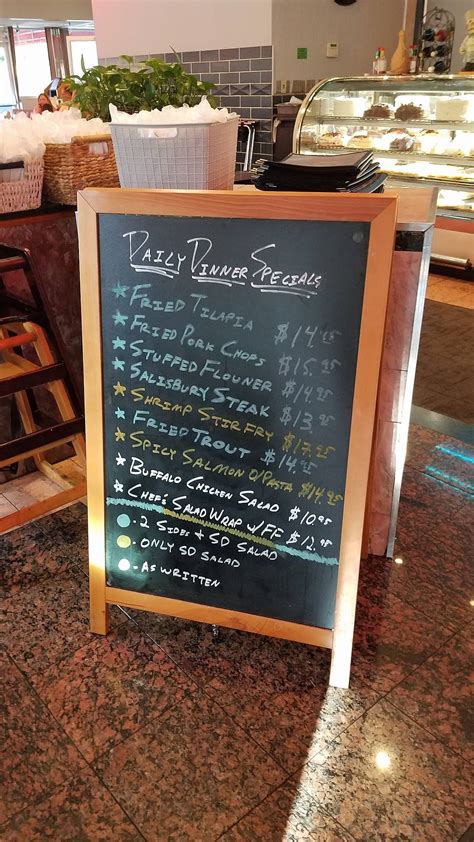 DAILY DINNER SPECIALS
★ FRIED TILAPIA $14.95
★ FRIED PORK CHOPS $15.95
★ STUFFED FLOUNER $14.95
★ SALISBURY STEAK $13.95
★ SHRIMP STIR FRY $17.95
★ FRIED TROUT $14.95
★ SPICY SALMON O/PASTA $14.95
★ BUFFALO CHICKEN SALAD $10.95
★ CHEF'S SALAD WRAP W/FF $12.95
- 2 SIDES & SD SALAD
- ONLY SD SALAD
- AS WRITTEN